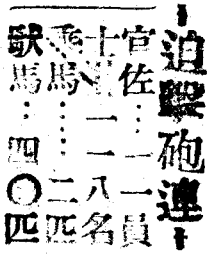 迫擊砲連
官佐…一一員
士兵…一一八名
乘馬……二匹
馱馬…四〇匹